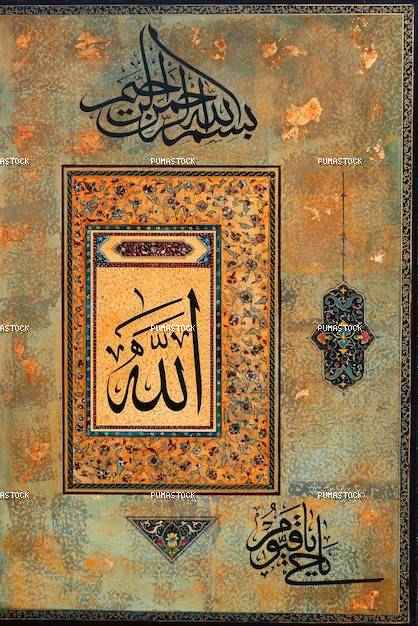 بسم الله الرحمن الرحيم
PUMASTOCK PUMASTOCK PUMASTOCK
الله
PUMASTOCK PUMASTOCK PUMASTOCK
PUMASTOCK PUMASTOCK PUMASTOCK
يا حي يا قيوم